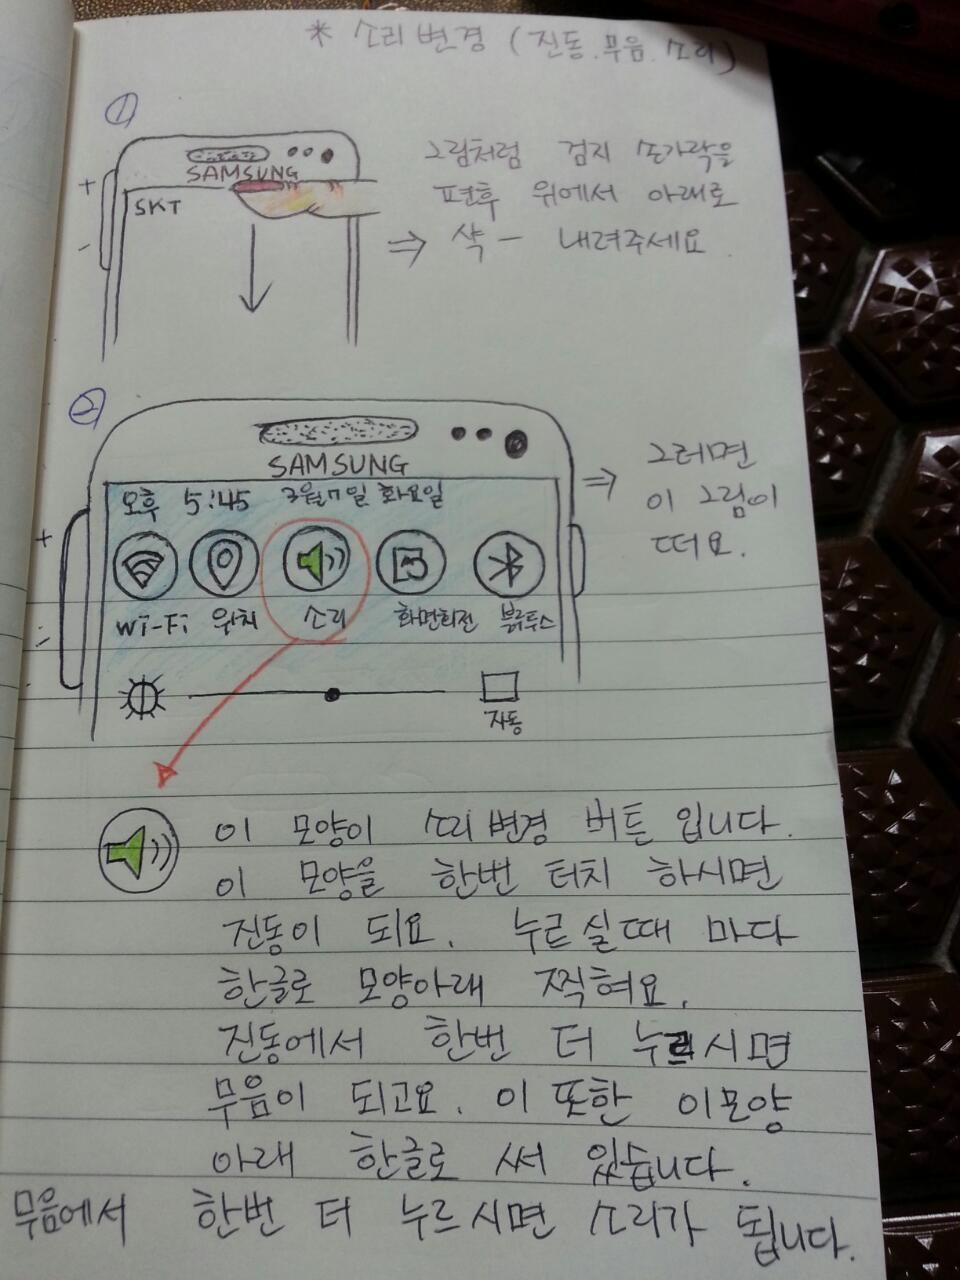 * 소리변경 (진동.무음.소리)
①
SAMSUNG
+
SKT
-
그림처럼 검지 손가락을
편후 위에서 아래로
⇒ 샥- 내려주세요.
②
SAMSUNG
오후 5:45 3월7일 화요일
+
-
Wi-Fi 위치 소리 화면회전 블루투스
자동
⇒ 그러면
이 그림이
떠요.
이 모양이 소리변경 버튼 입니다.
이 모양을 한번 터치 하시면
진동이 되요. 누르실때 마다
한글로 모양아래 찍혀요.
진동에서 한번 더 누르시면
무음이 되고요. 이 또한 이모양
아래 한글로 써 있습니다.
무음에서 한번 더 누르시면 소리가 됩니다.